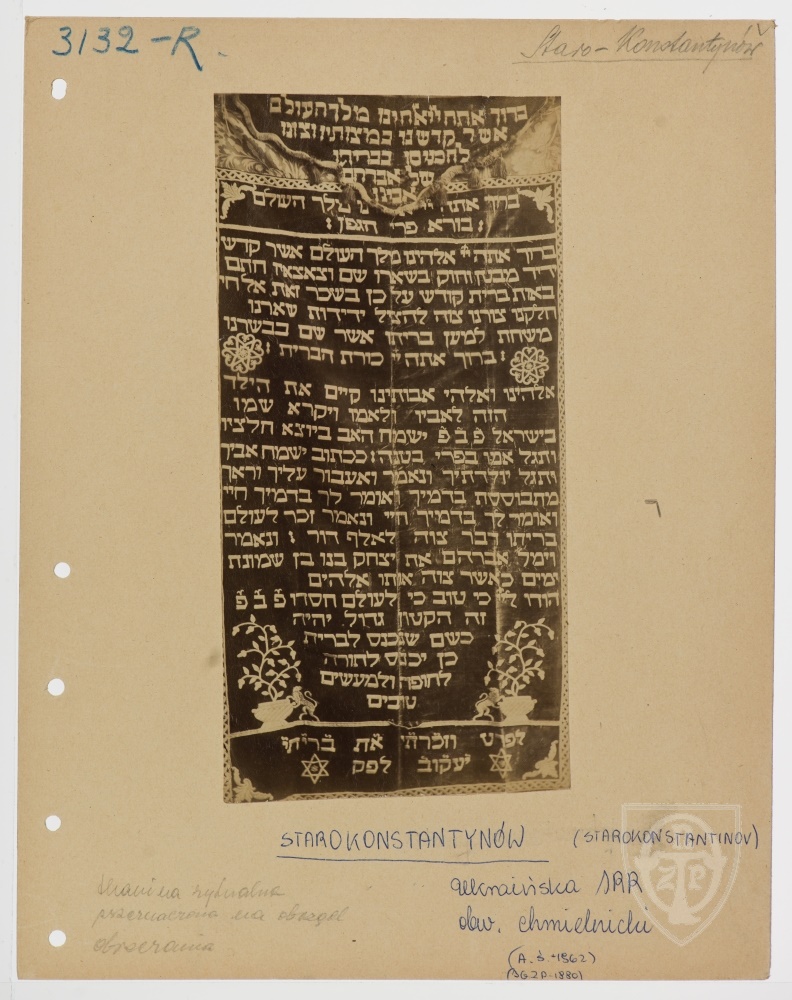 3132-R.
Staro-Konstantynów
ברוך אתה יי אלהינו מלך העולם
אשר קדשנו במצותיו וצונו
להכניסו בבריתו
של אברהם
אבינו
ברוך אתה מלך העולם
בורא פרי הגפן :
ברוך אתה יי אלהינו מלך העולם אשר קדש
ידיד מבטן וחוק בשארו שם וצאצאיו חתם
באות ברית קודש על כן בשכר זאת אל חי
חלקנו צורנו צוה להציל ידידות שארנו
משחת למען בריתו אשר שם בבשרנו
: ברוך אתה יי כורת הברית :
אלהינו ואלהי אבותינו קיים את הילד
הזה לאביו ולאמו ויקרא שמו
בישראל פ ב פ ישמח האב ביוצא חלציו
ותגל אמו בפרי בטנה : ככתוב ישמח אביך
ותגל יולדתיך ונאמר ואעבור עליך ואראך
מתבוססת בדמיך ואומר לך בדמיך חיי
ואומר לך בדמיך חיי ונאמר זכר לעולם
בריתו דבר צוה לאלף דור : ונאמר
וימל אברהם את יצחק בנו בן שמונת
ימים כאשר צוה אותו אלהים
הודו ליי כי טוב כי לעולם חסדו פ ב פ
זה הקטון גדול יהיה
כשם שנכנס לברית
כן יכנס לתורה
לחופה ולמעשים
טובים
לפרט וזכרתי את בריתי
יעקוב לפק
STAROKONSTANTYNÓW (STAROKONSTANTINOV)
Ukraińska SRR
obw. chmielnicki
(A.Ś.-1862)
(JGZP-1880)
tkanina rytualna
przeznaczona na obrzęd
obrzezania
TZP